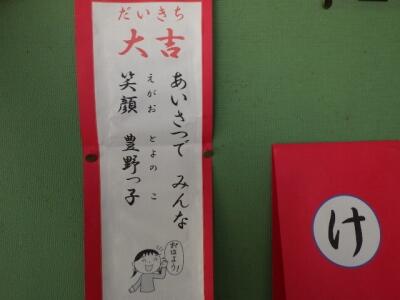 だいきち
大吉
あいさつで みんな
えがお とよの こ
笑顔 豊野っ子
おはよう!
け